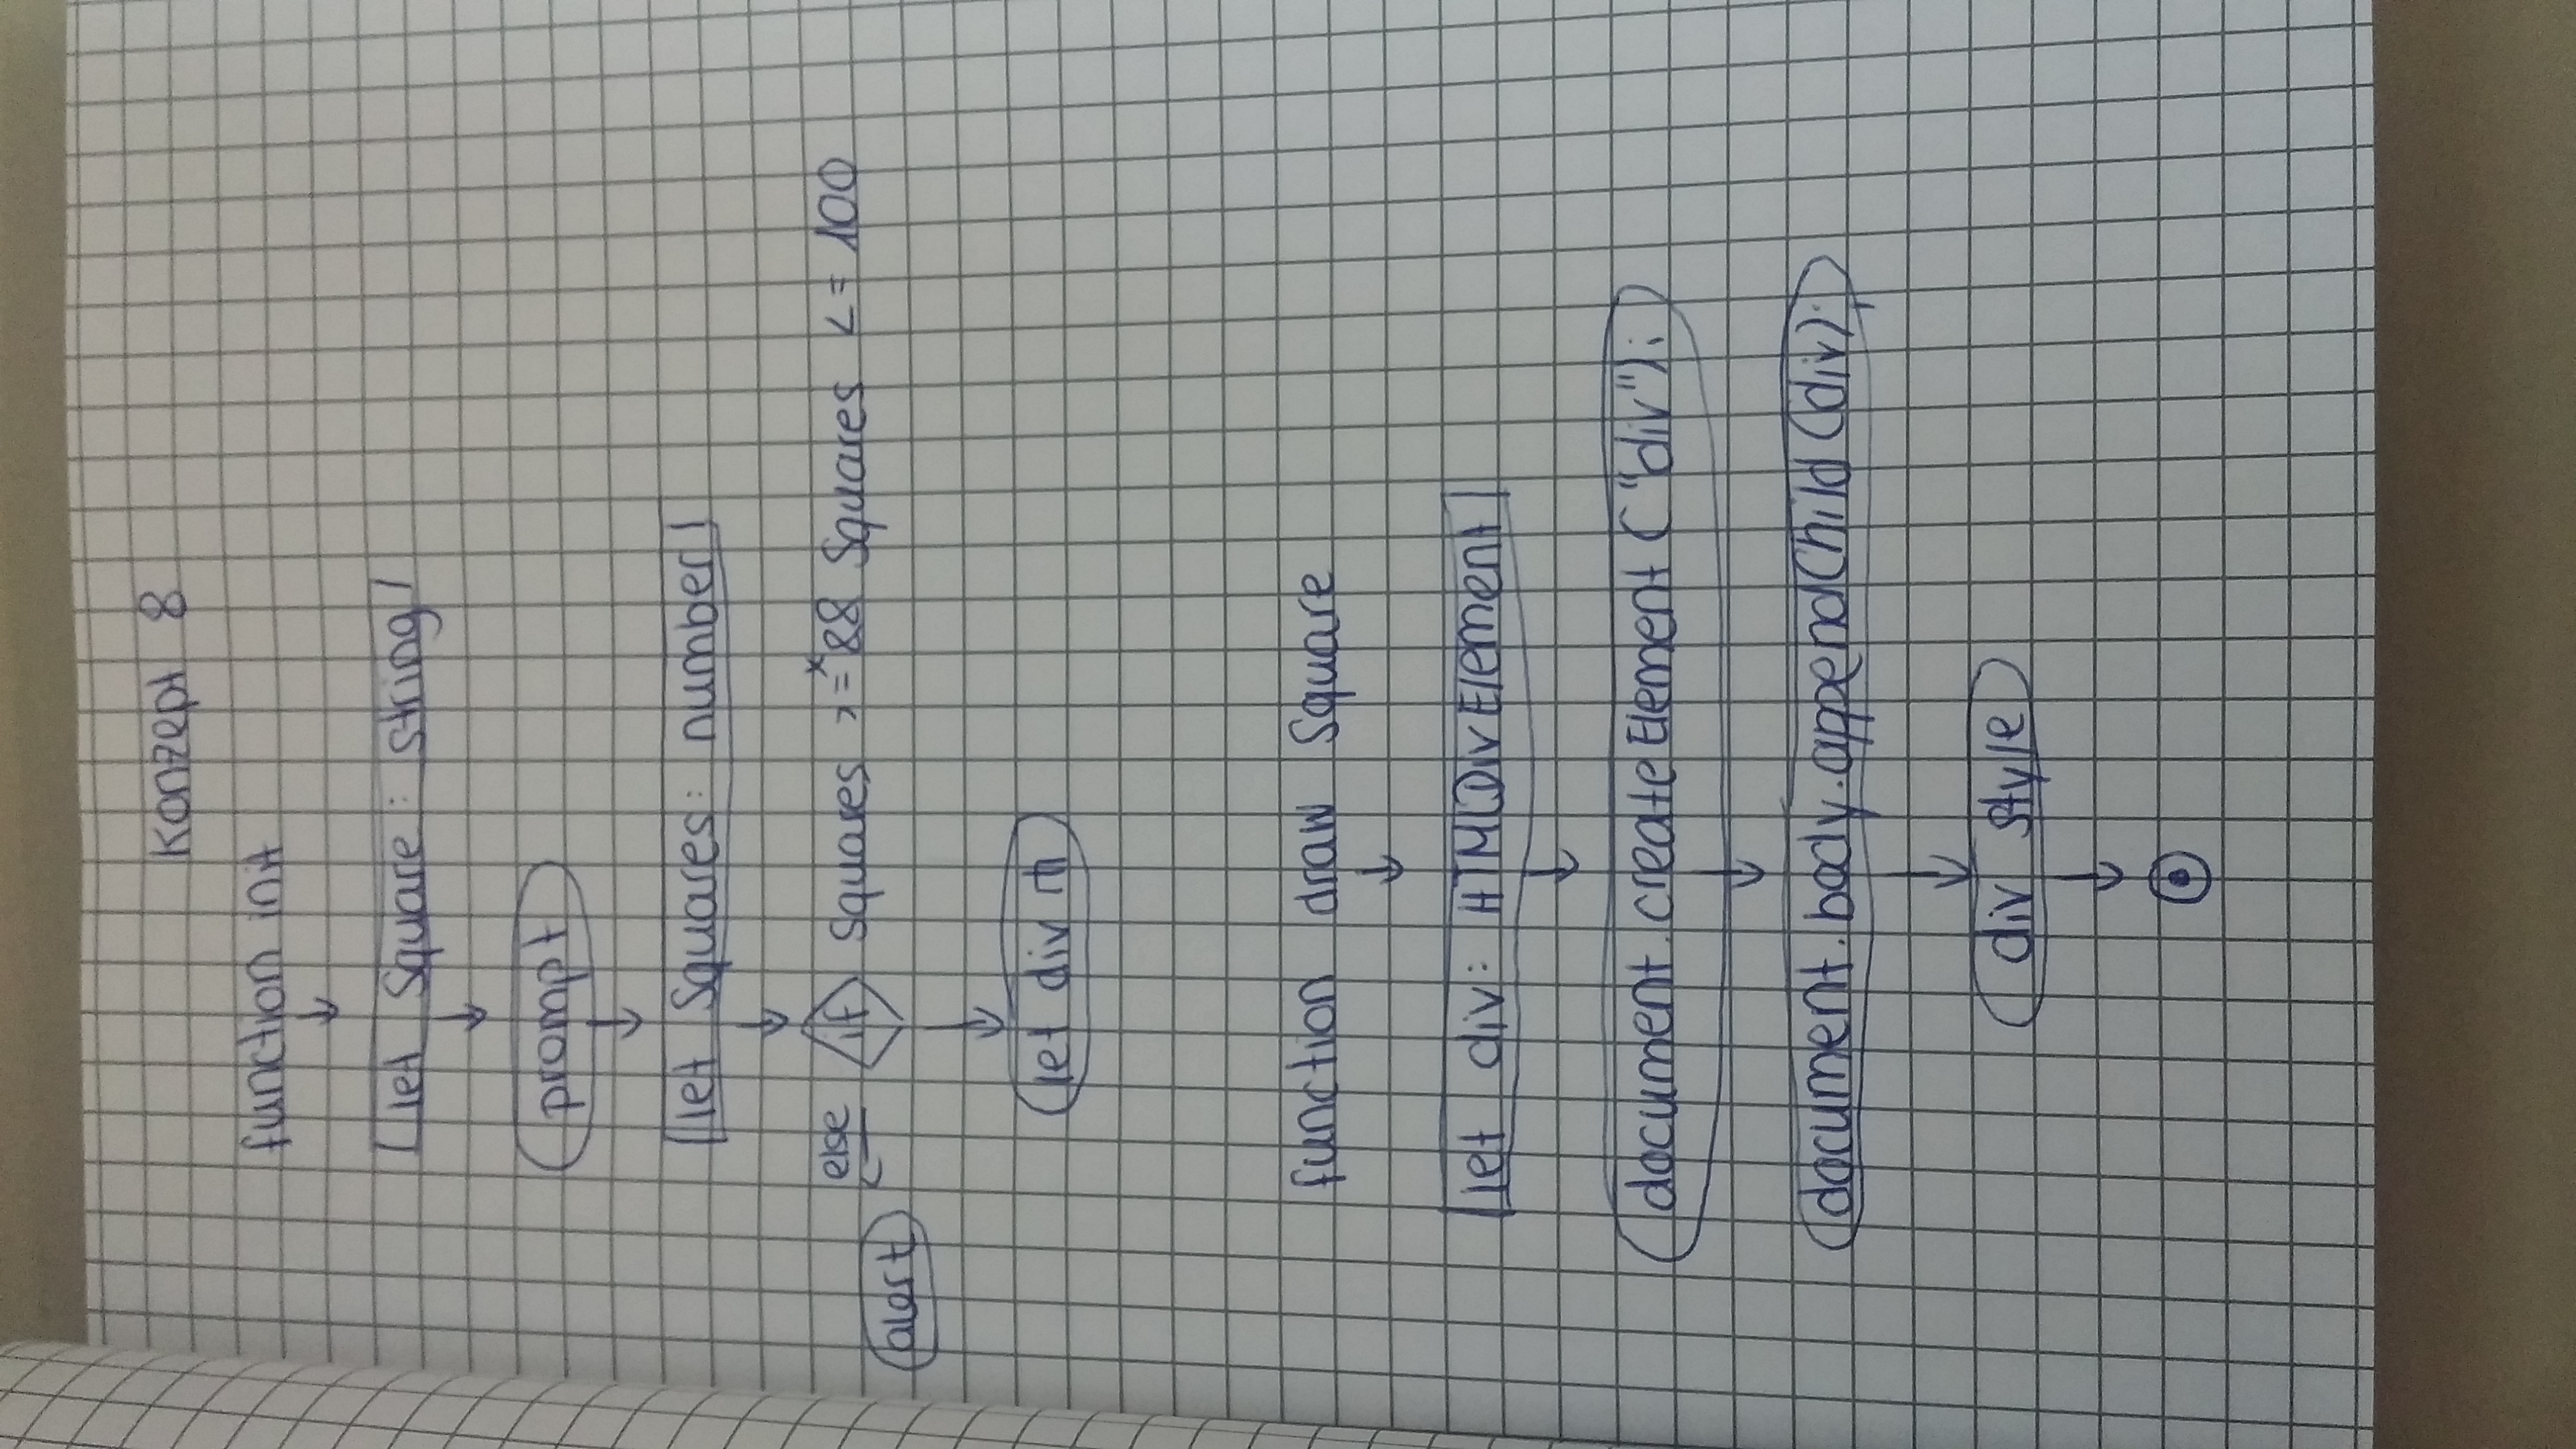 Konzept 8
function init
let Square: string
prompt
let Squares: number
else if squares >= && Squares <= 100
alert
let div
function draw Square
let div: HTMLDivElement
document.createElement("div");
document.body.appendChild(div);
div style